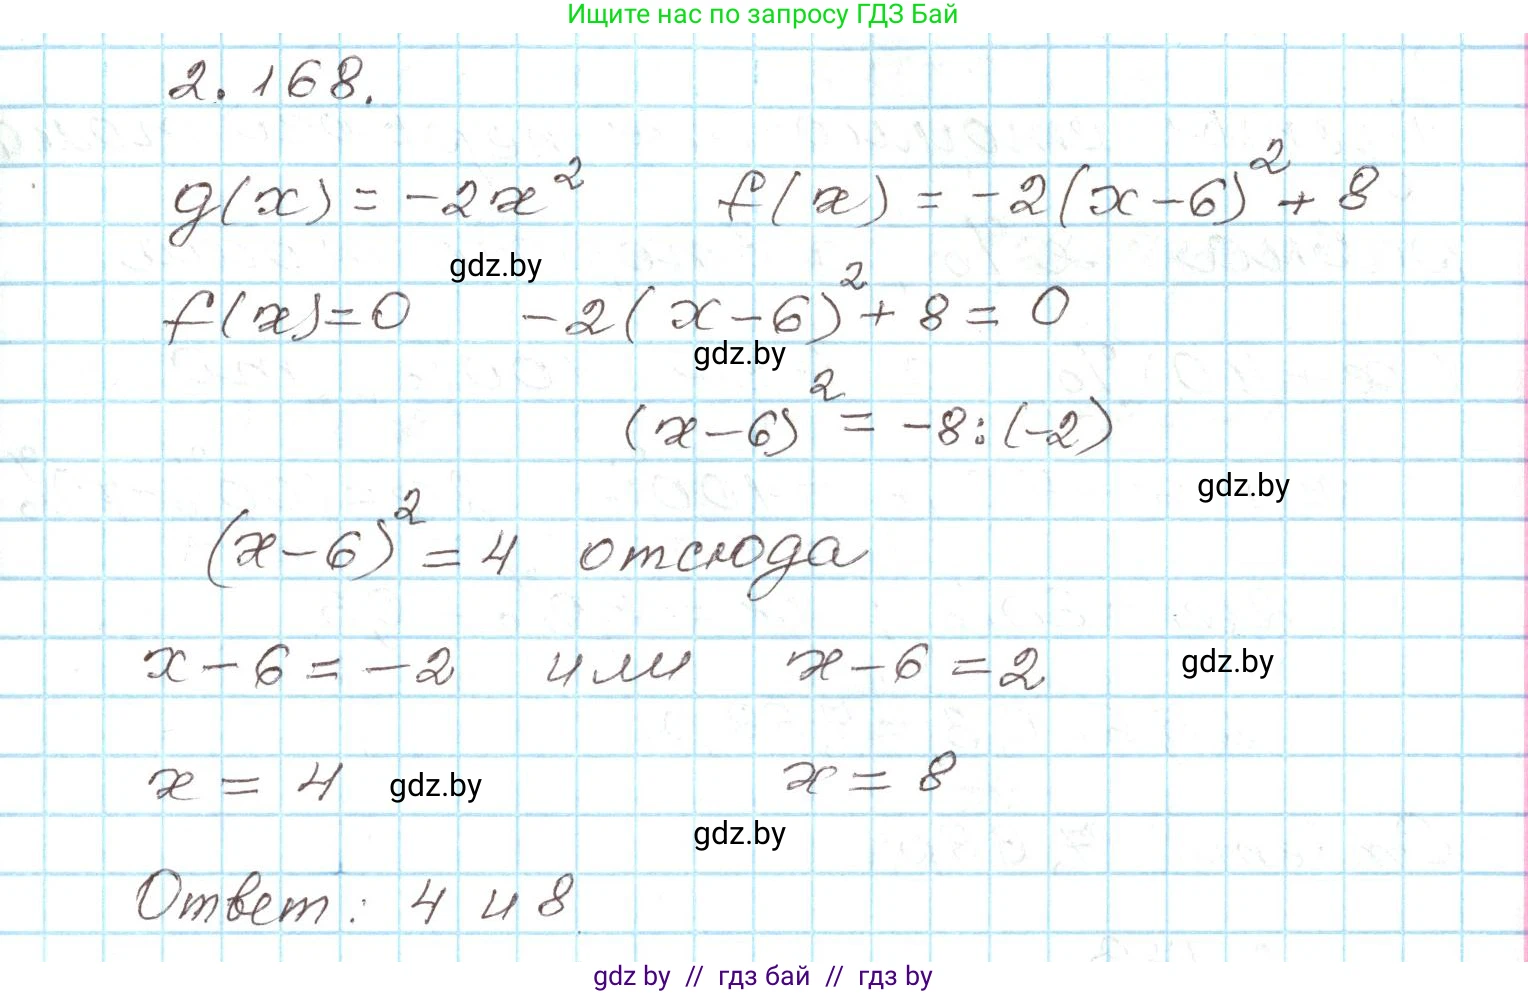 Ищите нас по запросу ГДЗ Бай
2.168.
g(x) = -2x² f(x) = -2(x-6)² + 8
gdz.by
f(x)=0 -2(x-6)² + 8 = 0
gdz.by
(x-6)² = -8:(-2)
gdz.by
(x-6)² = 4 отсюда
x-6 = -2 или x-6 = 2
gdz.by
x = 4 x = 8
gdz.by
gdz.by
Ответ: 4 и 8
gdz by // гдз бай // гдз by